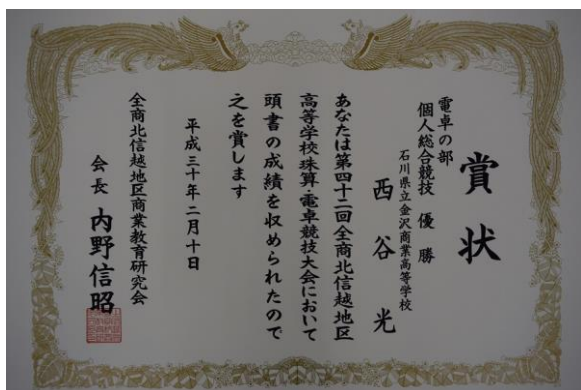 賞状
電卓の部
個人総合競技 優勝
石川県立金沢商業高等学校
西谷光
あなたは第四十二回全商北信越地区
高等学校珠算・電卓競技大会において
頭書の成績を収められたので
之を賞します
平成三十年二月十日
全商北信越地区商業教育研究会
会長 内野信昭